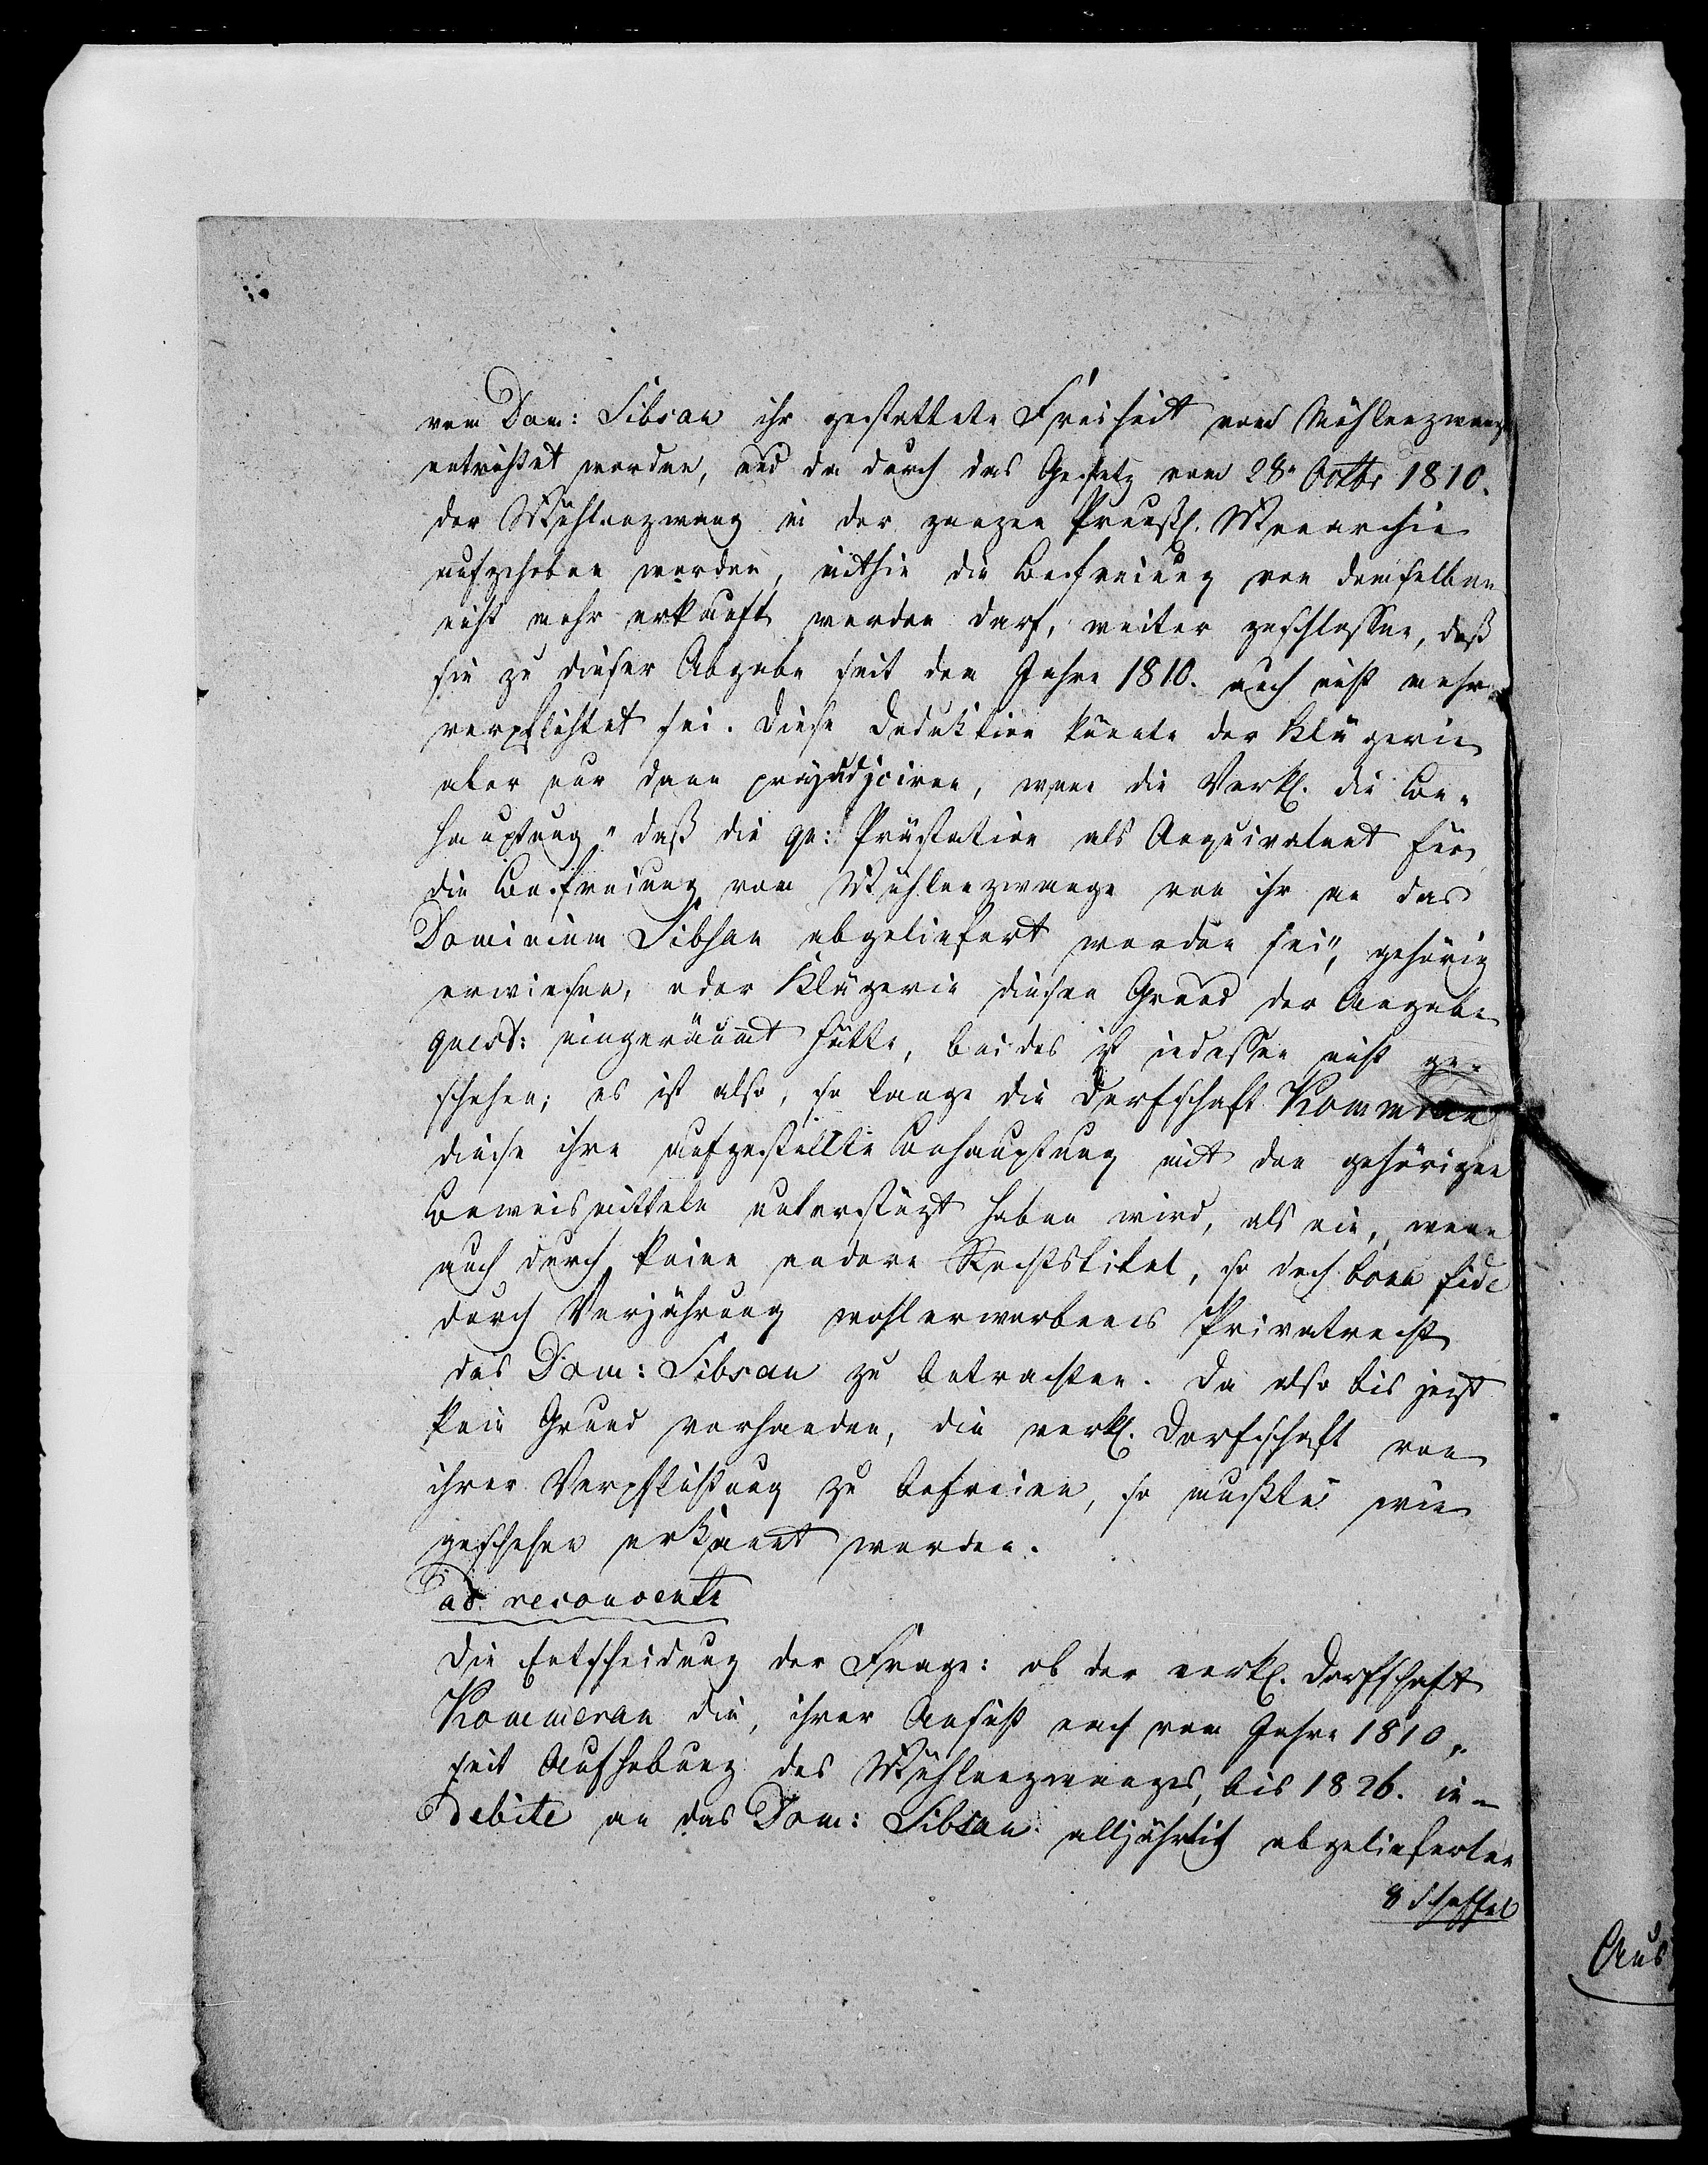 vom Dom: Sibsau ihr gestattete Freiheit vom Mühlenzwang
entrichtet worden, und da durch das Gesetz vom 28n Octbr 1810.
der Mühlenzwang in der ganzen Preußl. Monarchie
aufgehoben worden, mithin die Befreiung von demselben
nicht mehr erkauft werden darf, weiter geschlossen, daß
sie zu dieser Abgabe seit dem Jahre 1810. auch nicht mehr
verpflichtet sei. Diese Deduktion könnte der Klägerin
aber nur dann präjudiciren, wenn die Verkl. die Be-
hauptung „daß die qu: Prästation als Aequivalent für
die Befreiung vom Mühlenzwange von ihr an das
Dominium Sibsau abgeliefert worden sei", gehörig
erwiesen, oder Klägerin diesen Grund der Angabe
quest: eingeräumt hätte, beides ist indessen nicht ge-
schehen; es ist also, so lange die Dorfschaft Kommerau
diese ihre aufgestellte Behauptung mit den gehörigen
Beweismitteln unterstüzt haben wird, als ein, wenn
auch durch keinen andern Rechtstitel, so doch bona fide
durch Verjährung wohlerworbenes Privatrecht
des Dom: Sibsau zu betrachten. Da also bis jezt
kein Grund vorhanden, die verkl. Dorfschaft von
ihrer Verpflichtung zu befreien, so mußte wie
geschehen erkannt werden.
ad reconvent:
Die Entscheidung der Frage: ob der verkl. Dorfschaft
Kommerau die, ihrer Ansicht nach vom Jahre 1810,
seit Aufhebung des Mühlenzwanges, bis 1826. in-
debite an das Dom: Sibsau alljährlich abgelieferten
8 Scheffel
Aus